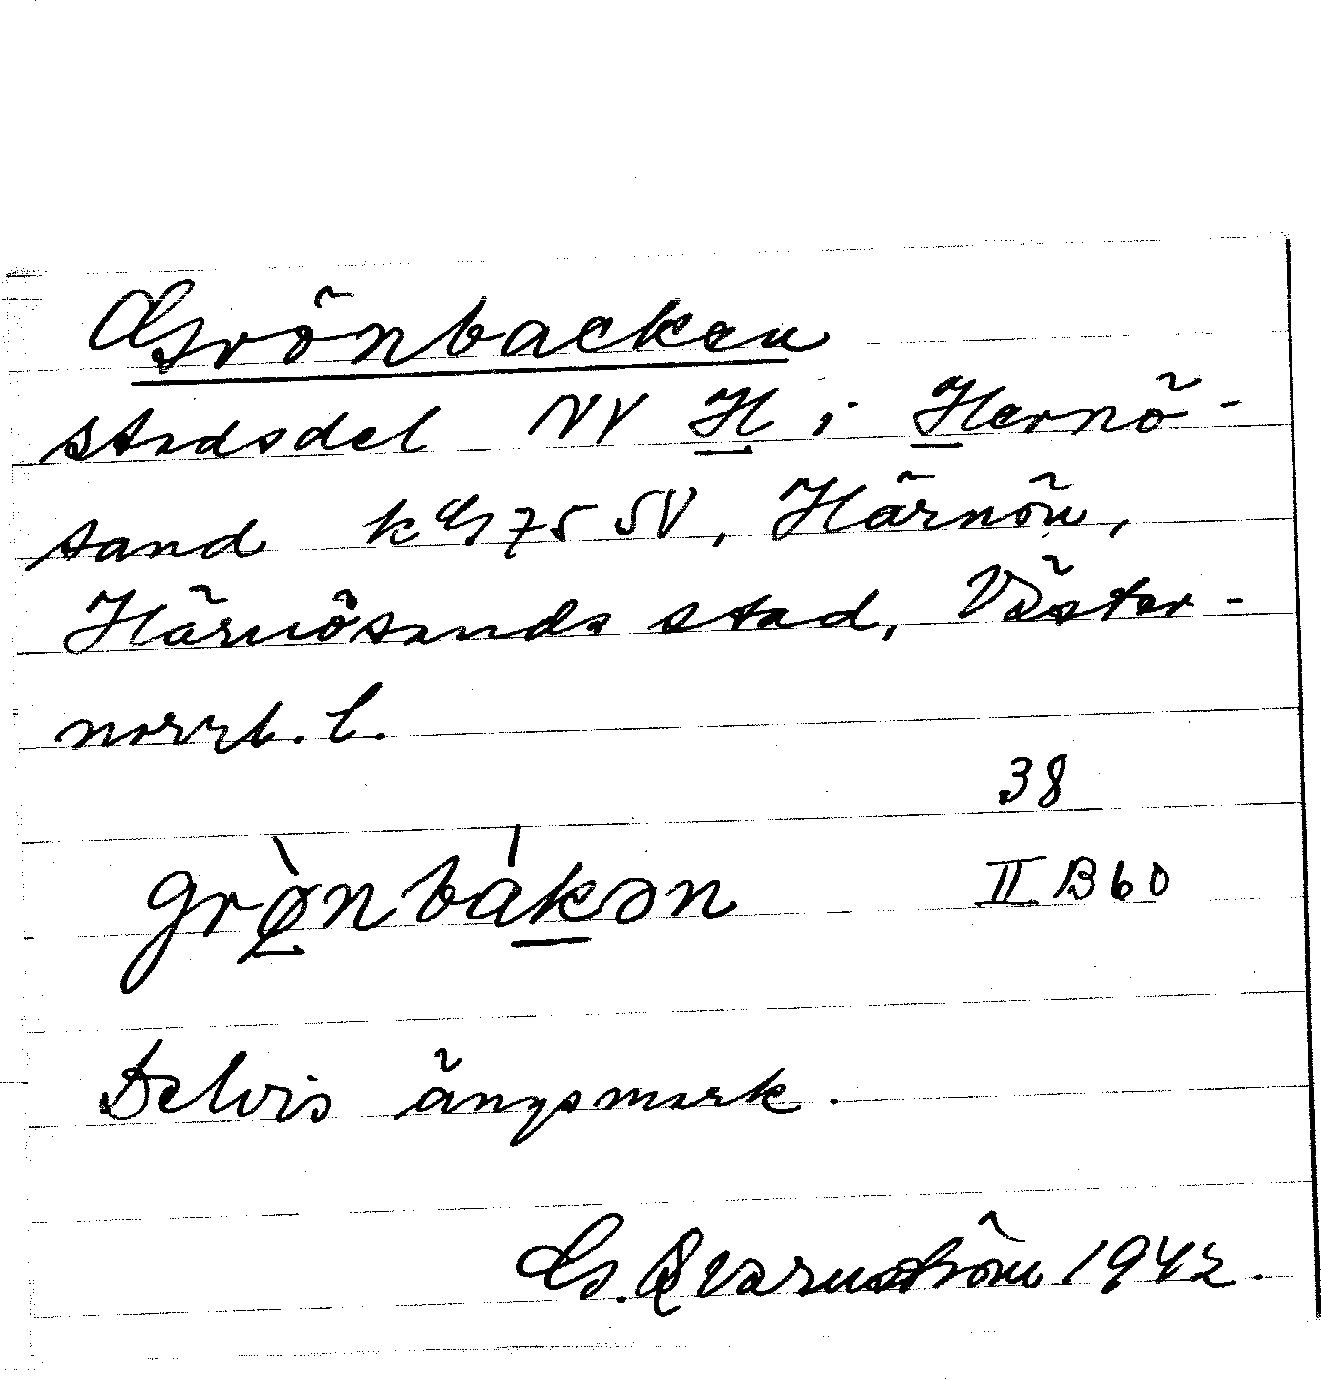 Grönbacken
stadsdel NV H i Hernö-
sand kG 75 SV, Härnön,
Härnösands stad, Väster-
norrl. l.
38
grø̀nbákən
II B 60
Delvis ängsmark.
G. Qvarnström 1942.